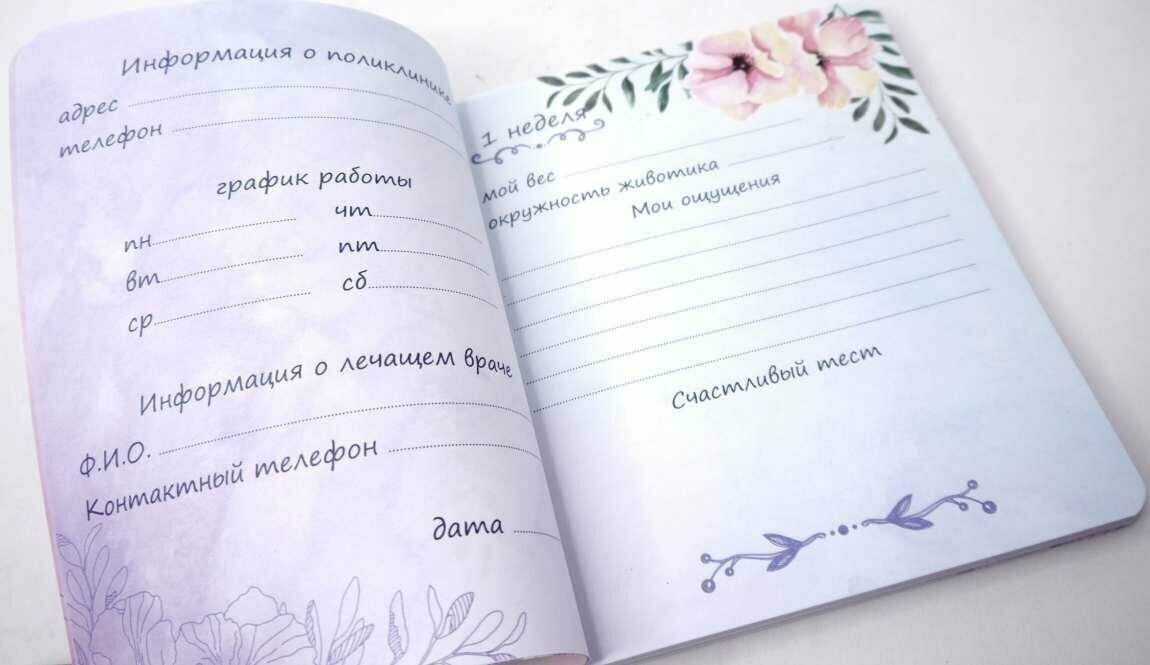 Информация о поликлинике
адрес
телефон
график работы
пн чт
вт пт
ср сб
Информация о лечащем враче
Ф.И.О.
Контактный телефон
дата
1 неделя
мой вес
окружность животика
Мои ощущения
Счастливый тест